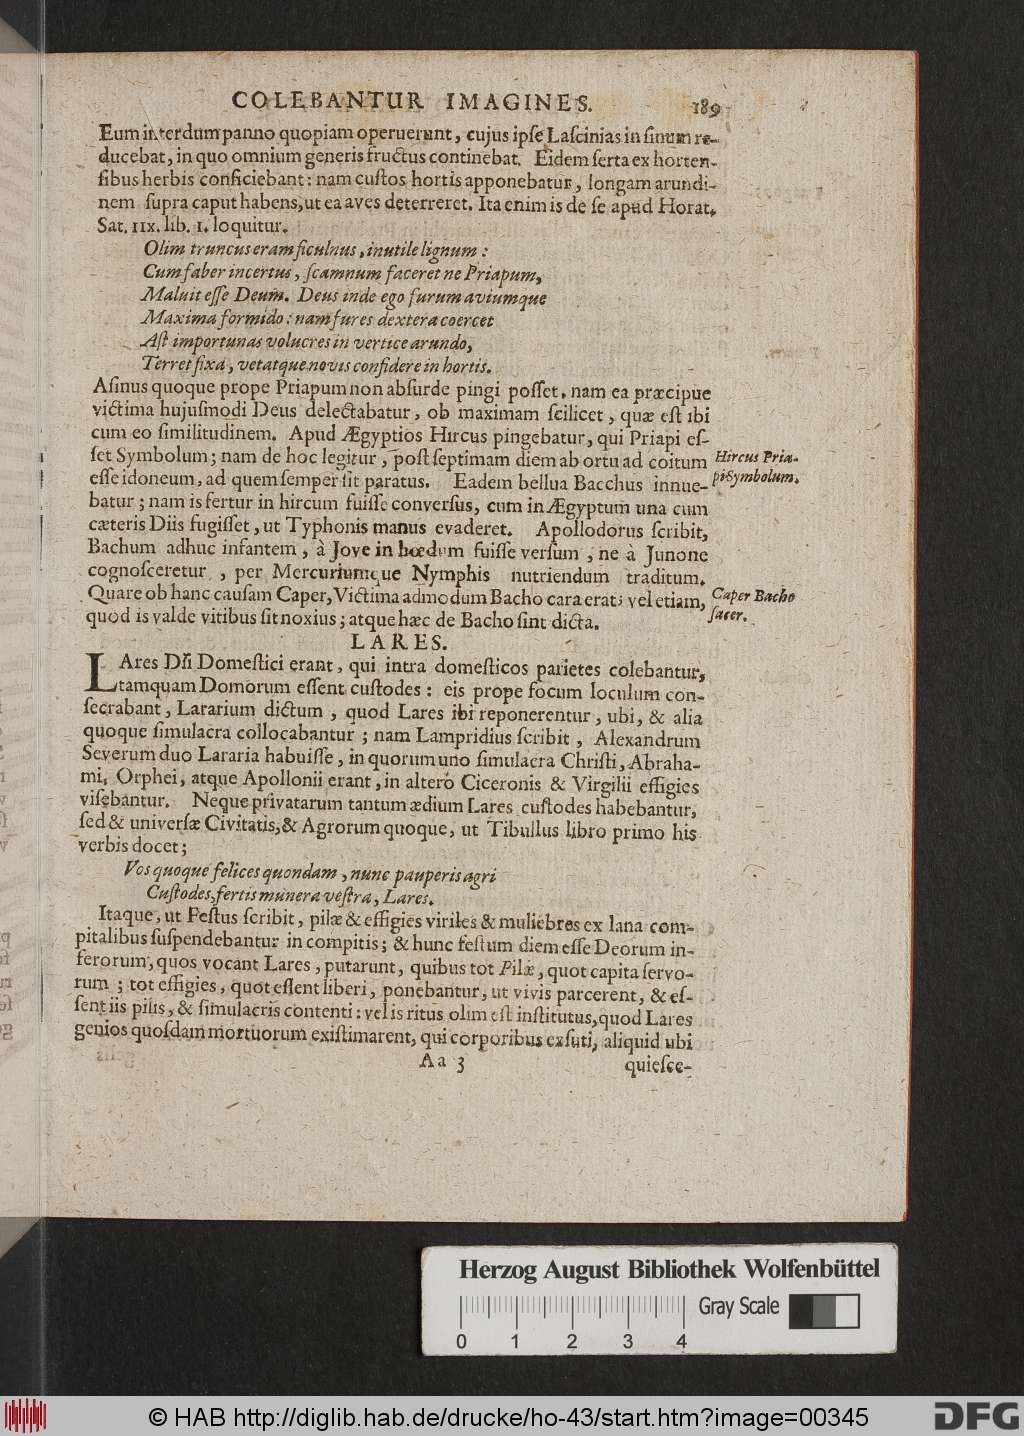 COLEBANTUR IMAGINES. 189
Eum interdum panno quopiam operuerunt, cujus ipſe Laſcinias in ſinum re-
ducebat, in quo omnium generis fructus continebat. Eidem ſerta ex horten-
ſibus herbis conficiebant: nam cuſtos hortis apponebatur, longam arundi-
nem ſupra caput habens, ut ea aves deterreret. Ita enim is de ſe apud Horat.
Sat. IIX. lib. I. loquitur.
Olim truncus eram ficulnus, inutile lignum:
Cum faber incertus, ſcamnum faceret ne Priapum,
Maluit eſſe Deum. Deus inde ego furum aviumque
Maxima formido: nam fures dextera coercet
Aſt importunas volucres in vertice arundo,
Terret fixa, vetatque novis confidere in hortis.
Aſinus quoque prope Priapum non abſurde pingi poſſet. nam ea præcipue
victima hujuſmodi Deus delectabatur, ob maximam ſcilicet, quæ eſt ibi
cum eo ſimilitudinem. Apud Ægyptios Hircus pingebatur, qui Priapi eſ-
ſet Symbolum; nam de hoc legitur, poſt ſeptimam diem ab ortu ad coitum
eſſe idoneum, ad quem ſemper ſit paratus. Eadem bellua Bacchus innue-
Hircus Pria-
pi Symbolum.
batur; nam is fertur in hircum fuiſſe converſus, cum in Ægyptum una cum
cæteris Diis fugiſſet, ut Typhonis manus evaderet. Apollodorus ſcribit,
Bachum adhuc infantem, à Jove in hœdum fuiſſe verſum, ne à Junone
cognoſceretur, per Mercuriumque Nymphis nutriendum traditum.
Quare ob hanc cauſam Caper, Victima admodum Bacho cara erat; vel etiam,
quod is valde vitibus ſit noxius; atque hæc de Bacho ſint dicta.
Caper Bacho
ſacer.
LARES.
LAres Dii Domeſtici erant, qui intra domeſticos parietes colebantur,
tamquam Domorum eſſent cuſtodes: eis prope focum loculum con-
ſecrabant, Lararium dictum, quod Lares ibi reponerentur, ubi, & alia
quoque ſimulacra collocabantur; nam Lampridius ſcribit, Alexandrum
Severum duo Lararia habuiſſe, in quorum uno ſimulacra Chriſti, Abraha-
mi, Orphei, atque Apollonii erant, in altero Ciceronis & Virgilii effigies
viſebantur. Neque privatarum tantum ædium Lares cuſtodes habebantur,
ſed & univerſæ Civitatis, & Agrorum quoque, ut Tibullus libro primo his
verbis docet;
Vos quoque felices quondam, nunc pauperis agri
Cuſtodes, fertis munera veſtra, Lares.
Itaque, ut Feſtus ſcribit, pilæ & effigies viriles & muliebres ex lana com-
pitalibus ſuſpendebantur in compitis; & hunc feſtum diem eſſe Deorum in-
ferorum, quos vocant Lares, putarunt, quibus tot Pilæ, quot capita ſervo-
rum; tot effigies, quot eſſent liberi, ponebantur, ut vivis parcerent, & eſ-
ſent iis pilis, & ſimulacris contenti: vel is ritus olim eſt inſtitutus, quod Lares
genios quoſdam mortuorum exiſtimarent, qui corporibus exſuti, aliquid ubi
Aa 3 quieſce-
Herzog August Bibliothek Wolfenbüttel
Gray Scale
0 1 2 3 4
© HAB http://diglib.hab.de/drucke/ho-43/start.htm?image=00345
DFG